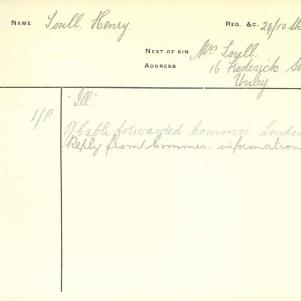 NAME Snell Henry. REG. &C. 28/10th
NEXT OF KIN Mrs Snell.
ADDRESS 16 Frederick
Unley
1/P Ill
Cable forwarded Commr. London
Reply from Commr. information